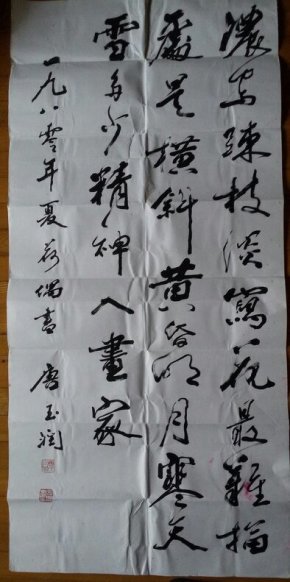 濃写疎枝淡寫花最難描
處是橫斜黃昏明月寒天
雪多少精神入畫家
一九八零年夏偶書 唐玉润